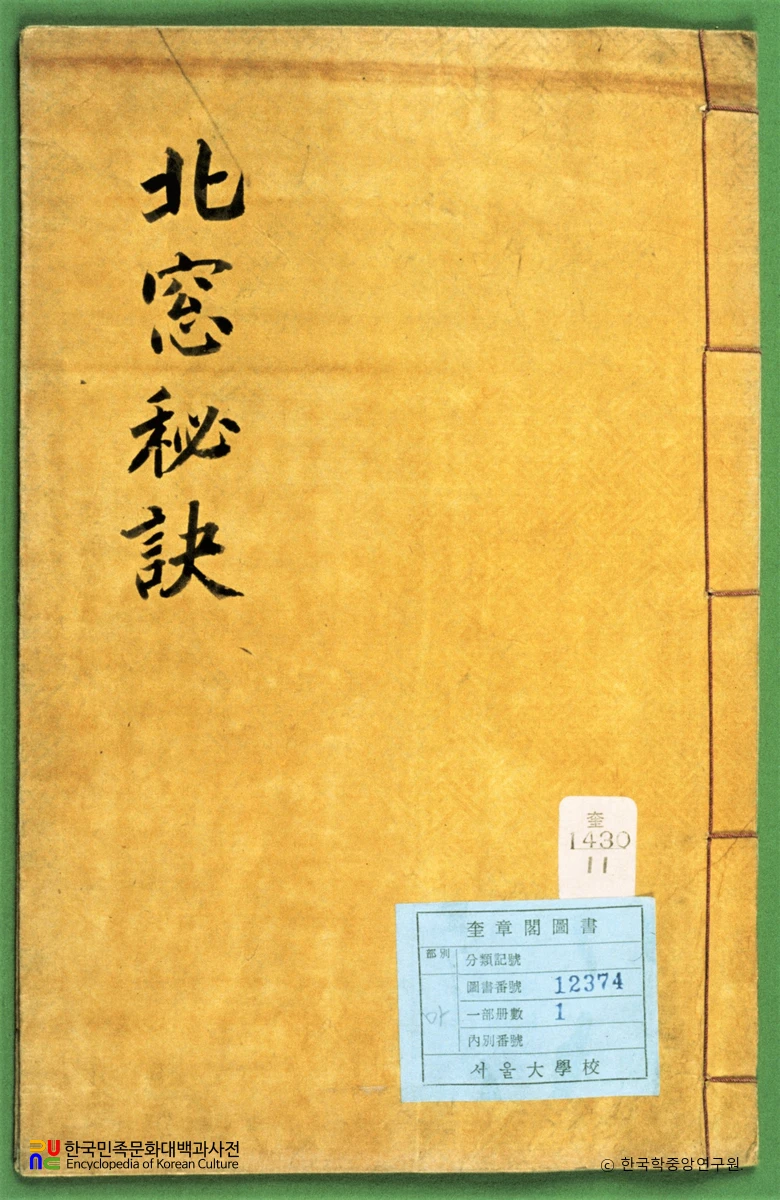 北窓秘訣
奎
1430
11
奎章閣圖書
部別
分類記號
圖書番號 12374
一部册數 1
內別番號
서울大學校
한국민족문화대백과사전
Encyclopedia of Korean Culture
© 한국학중앙연구원